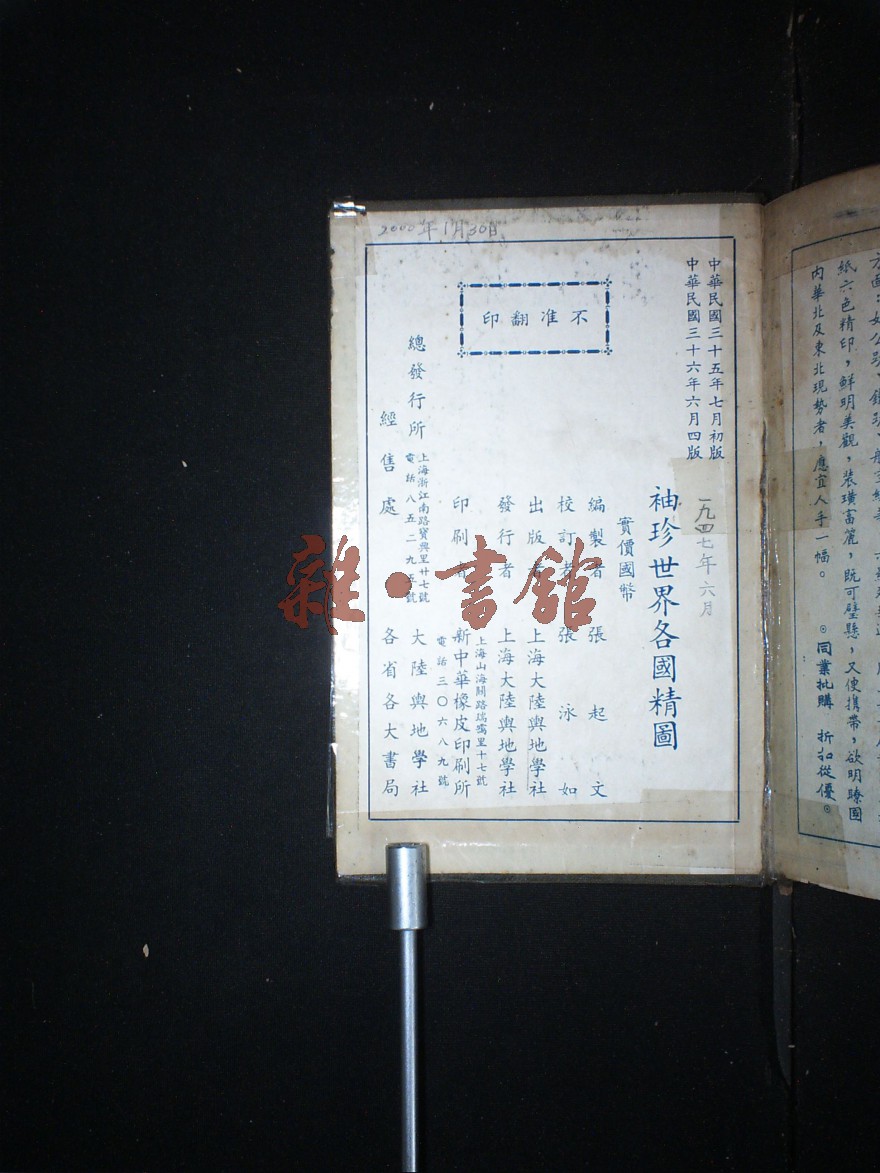 方面：如公路、鐵路、航空線
紙六色精印，鮮明美觀，裝璜富麗，既可壁懸，又便携帶，欲明瞭國
內華北及東北現勢者，應宜人手一幅。 ⊙同業批購 折扣從優⊙
2000年1月30日
中華民國三十五年七月初版
中華民國三十六年六月四版
一九四七年六月
袖珍世界各國精圖
實價國幣
編製者 張起文
校訂者 張泳如
出版者 上海大陸輿地學社
發行者 上海大陸輿地學社
上海山海關路瑞鴬里十七號
印刷者 新中華橡皮印刷所
電話三〇六八九號
總發行所 上海浙江南路寶興里廿七號 電話八五二九五號 大陸輿地學社
經售處 各省各大書局
不准翻印
雜·書館